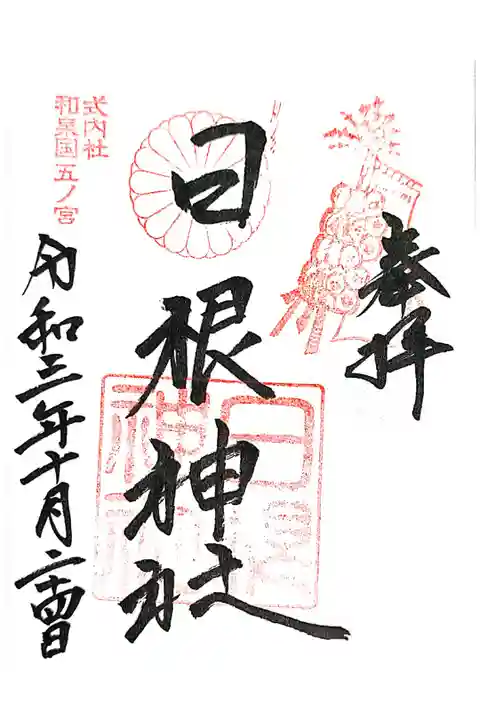 奉拝
日根神社
式内社
和泉国五ノ宮
令和三年十月二十四日
日根神社